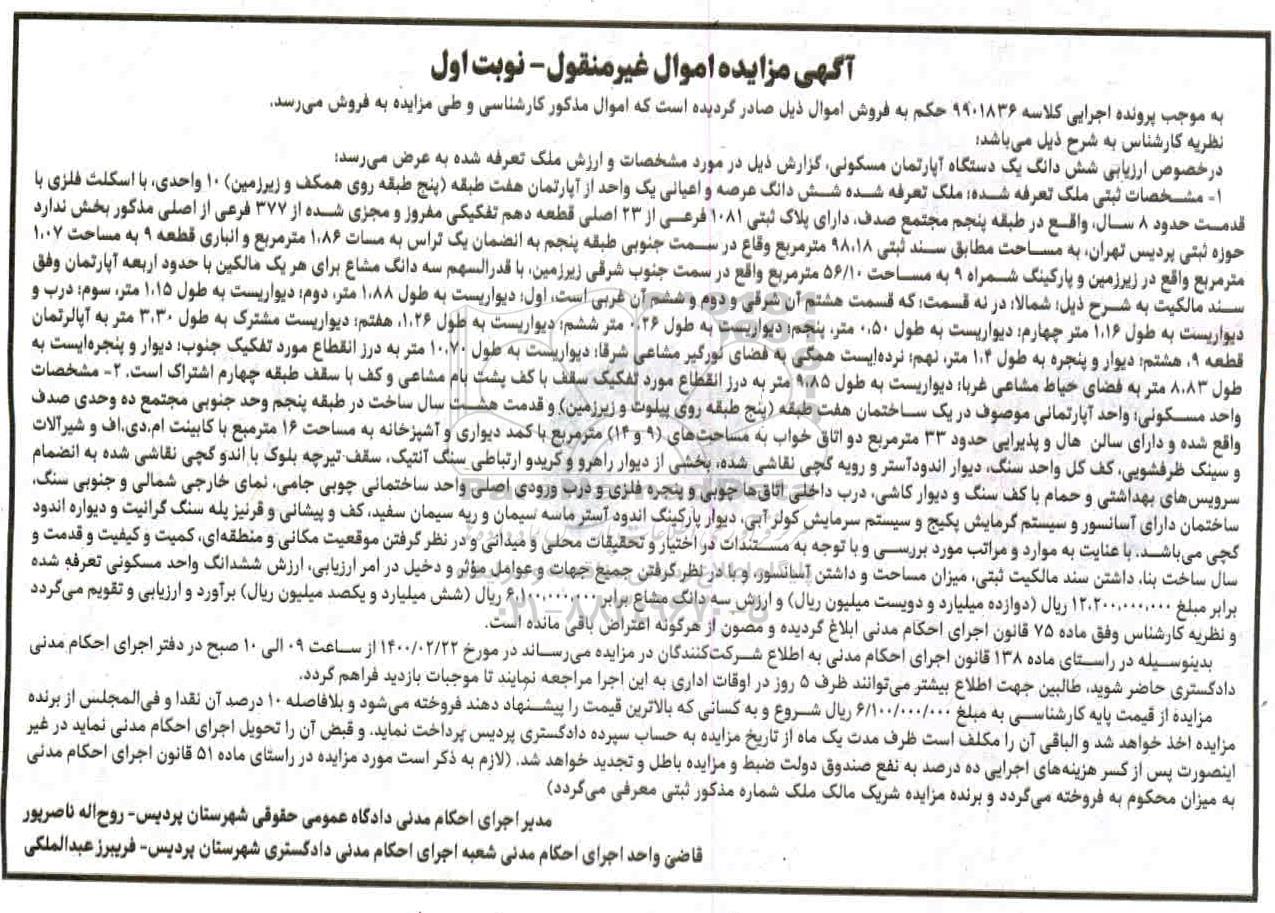 آگهی مزایده اموال غیرمنقول- نوبت اول
به موجب پرونده اجرایی کلاسه ۹۹۰۱۸۳۶ حکم به فروش اموال ذیل صادر گردیده است که اموال مذکور کارشناسی و طی مزایده به فروش می‌رسد.
نظریه کارشناس به شرح ذیل می‌باشد:
درخصوص ارزیابی شش دانگ یک دستگاه آپارتمان مسکونی، گزارش ذیل در مورد مشخصات و ارزش ملک تعرفه شده به عرض می‌رسد:
۱- مشخصات ثبتی ملک تعرفه شده: ملک تعرفه شده شش دانگ عرصه و اعیانی یک واحد از آپارتمان هفت طبقه (پنج طبقه روی همکف و زیرزمین) ۱۰ واحدی، با اسکلت فلزی با
قدمت حدود ۸ سال، واقع در طبقه پنجم مجتمع صدف، دارای پلاک ثبتی ۱۰۸۱ فرعی از ۲۳ اصلی قطعه دهم تفکیکی مفروز و مجزی شده از ۳۷۷ فرعی از اصلی مذکور بخش ندارد
حوزه ثبتی پردیس تهران، به مساحت مطابق سند ثبتی ۹۸،۱۸ مترمربع وقاع در سمت جنوبی طبقه پنجم به انضمان یک تراس به مسات ۱،۸۶ مترمربع و انباری قطعه ۹ به مساحت ۱،۰۷
مترمربع واقع در زیرزمین و پارکینگ شمراه ۹ به مساحت ۵۶/۱۰ مترمربع واقع در سمت جنوب شرقی زیرزمین، با قدرالسهم سه دانگ مشاع برای هر یک مالکین با حدود اربعه آپارتمان وفق
سند مالکیت به شرح ذیل: شمالا: در نه قسمت: که قسمت هشتم آن شرقی و دوم و ششم آن غربی است، اول: دیواریست به طول ۱،۸۸ متر، دوم: دیواریست به طول ۱،۱۵ متر، سوم: درب و
دیواریست به طول ۱،۱۶ متر چهارم: دیواریست به طول ۰،۵۰ متر، پنجم: دیواریست به طول ۰،۲۶ متر ششم: دیواریست به طول ۱،۲۶، هفتم: دیواریست مشترک به طول ۳،۳۰ متر به آپالرتمان
قطعه ۹، هشتم: دیوار و پنجره به طول ۱،۴ متر، نهم: نرده‌ایست همگی به فضای نورگیر مشاعی شرقا: دیواریست به طول ۱۰،۷۰ متر به درز انقطاع مورد تفکیک جنوب: دیوار و پنجره‌ایست به
طول ۸،۸۳ متر به فضای حیاط مشاعی غربا: دیواریست به طول ۹،۸۵ متر به درز انقطاع مورد تفکیک سقف با کف پشت بام مشاعی و کف با سقف طبقه چهارم اشتراک است. ۲- مشخصات
واحد مسکونی: واحد آپارتمانی موصوف در یک ساختمان هفت طبقه (پنج طبقه روی پیلوت و زیرزمین) و قدمت هشت سال ساخت در طبقه پنجم وحد جنوبی مجتمع ده وحدی صدف
واقع شده و دارای سالن هال و پذیرایی حدود ۳۳ مترمربع دو اتاق خواب به مساحت‌های (۹ و ۱۴) مترمربع با کمد دیواری و آشپزخانه به مساحت ۱۶ مترمبع با کابینت ام.دی.اف و شیرآلات
و سینک ظرفشویی، کف کل واحد سنگ، دیوار اندودآستر و رویه گچی نقاشی شده، بخشی از دیوار راهرو و کریدو ارتباطی سنگ آنتیک، سقف تیرچه بلوک با اندو گچی نقاشی شده به انضمام
سرویس‌های بهداشتی و حمام با کف سنگ و دیوار کاشی، درب داخلی اتاق‌ها چوبی و پنجره فلزی و درب ورودی اصلی واحد ساختمانی چوبی جامی، نمای خارجی شمالی و جنوبی سنگ،
ساختمان دارای آسانسور و سیستم گرمایش پکیج و سیستم سرمایش کولر آبی، دیوار پارکینگ اندود آستر ماسه سیمان و ریه سیمان سفید، کف و پیشانی و قرنیز پله سنگ گرانیت و دیواره اندود
گچی می‌باشد. با عنایت به موارد و مراتب مورد بررسی و با توجه به مستندات در اختیار و تحقیقات محلی و میدانی و در نظر گرفتن موقعیت مکانی و منطقه‌ای، کمیت و کیفیت و قدمت و
سال ساخت بنا، داشتن سند مالکیت ثبتی، میزان مساحت و داشتن آسانسور، و با در نظر گرفتن جمیع جهات و عوامل مؤثر و دخیل در امر ارزیابی، ارزش ششدانگ واحد مسکونی تعرفه شده
برابر مبلغ ۱۲،۲۰۰،۰۰۰،۰۰۰ ریال (دوازده میلیارد و دویست میلیون ریال) و ارزش سه دانگ مشاع برابر ۶،۱۰۰،۰۰۰،۰۰۰ ریال (شش میلیارد و یکصد میلیون ریال) برآورد و ارزیابی و تقویم می‌گردد
و نظریه کارشناس وفق ماده ۷۵ قانون اجرای احکام مدنی ابلاغ گردیده و مصون از هرگونه اعتراض باقی مانده است.
بدینوسیله در راستای ماده ۱۳۸ قانون اجرای احکام مدنی به اطلاع شرکت‌کنندگان در مزایده می‌رساند در مورخ ۱۴۰۰/۰۲/۲۲ از ساعت ۰۹ الی ۱۰ صبح در دفتر اجرای احکام مدنی
دادگستری حاضر شوید، طالبین جهت اطلاع بیشتر می‌توانند ظرف ۵ روز در اوقات اداری به این اجرا مراجعه نمایند تا موجبات بازدید فراهم گردد.
مزایده از قیمت پایه کارشناسی به مبلغ ۶/۱۰۰/۰۰۰/۰۰۰ ریال شروع و به کسانی که بالاترین قیمت را پیشنهاد دهند فروخته می‌شود و بلافاصله ۱۰ درصد آن نقدا و فی‌المجلس از برنده
مزایده اخذ خواهد شد و الباقی آن را مکلف است ظرف مدت یک ماه از تاریخ مزایده به حساب سپرده دادگستری پردیس پرداخت نماید. و قبض آن را تحویل اجرای احکام مدنی نماید در غیر
اینصورت پس از کسر هزینه‌های اجرایی ده درصد به نفع صندوق دولت ضبط و مزایده باطل و تجدید خواهد شد. (لازم به ذکر است مورد مزایده در راستای ماده ۵۱ قانون اجرای احکام مدنی
به میزان محکوم به فروخته می‌گردد و برنده مزایده شریک مالک ملک شماره مذکور ثبتی معرفی می‌گردد)
مدیر اجرای احکام مدنی دادگاه عمومی حقوقی شهرستان پردیس- روح‌اله ناصرپور
قاضی واحد اجرای احکام مدنی شعبه اجرای احکام مدنی دادگستری شهرستان پردیس- فریبرز عبدالملکی